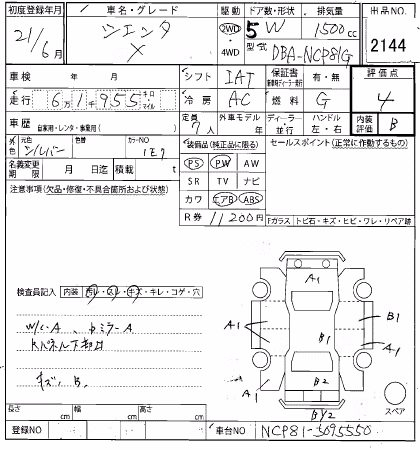 初度登録年月 車名・グレード 駆動 ドア数・形状 排気量 出品NO.
21/6月 シエンタ X 2WD 4WD 5W 1500cc 2144
型式 DBA-NCP81G
車検 年 月 シフト IAT 保証書 有・無 評価点
走行 6万1千955 キロ マイル 冷房 AC 燃料 G 4
車歴 自家用・レンタ・事業用( ) 定員 7人 外車モデル 年 ディーラー・並行 ハンドル 左・右 内装評価 B
外色 元色 シルバー 色替 カラーNO 1E7 装備品(純正品に限る) セールスポイント(正常に作動するもの)
名義変更期限 月 日迄 積載 t PS PW AW
注意事項(欠品・修復・不具合箇所および状態) SR TV ナビ
カワ エアB ABS
R券 11200円 Fガラス トビ石・キズ・ヒビ・ワレ・リペア跡
検査員記入 内装 汚レ・スレ・キズ・キレ・コゲ・穴
W/C A、
キズ、B、
A1
A1
B1
B1
A1
A1
B2
BY2
スペア
長さ cm 幅 cm 高さ cm
登録NO 車台NO NCP81-5095550